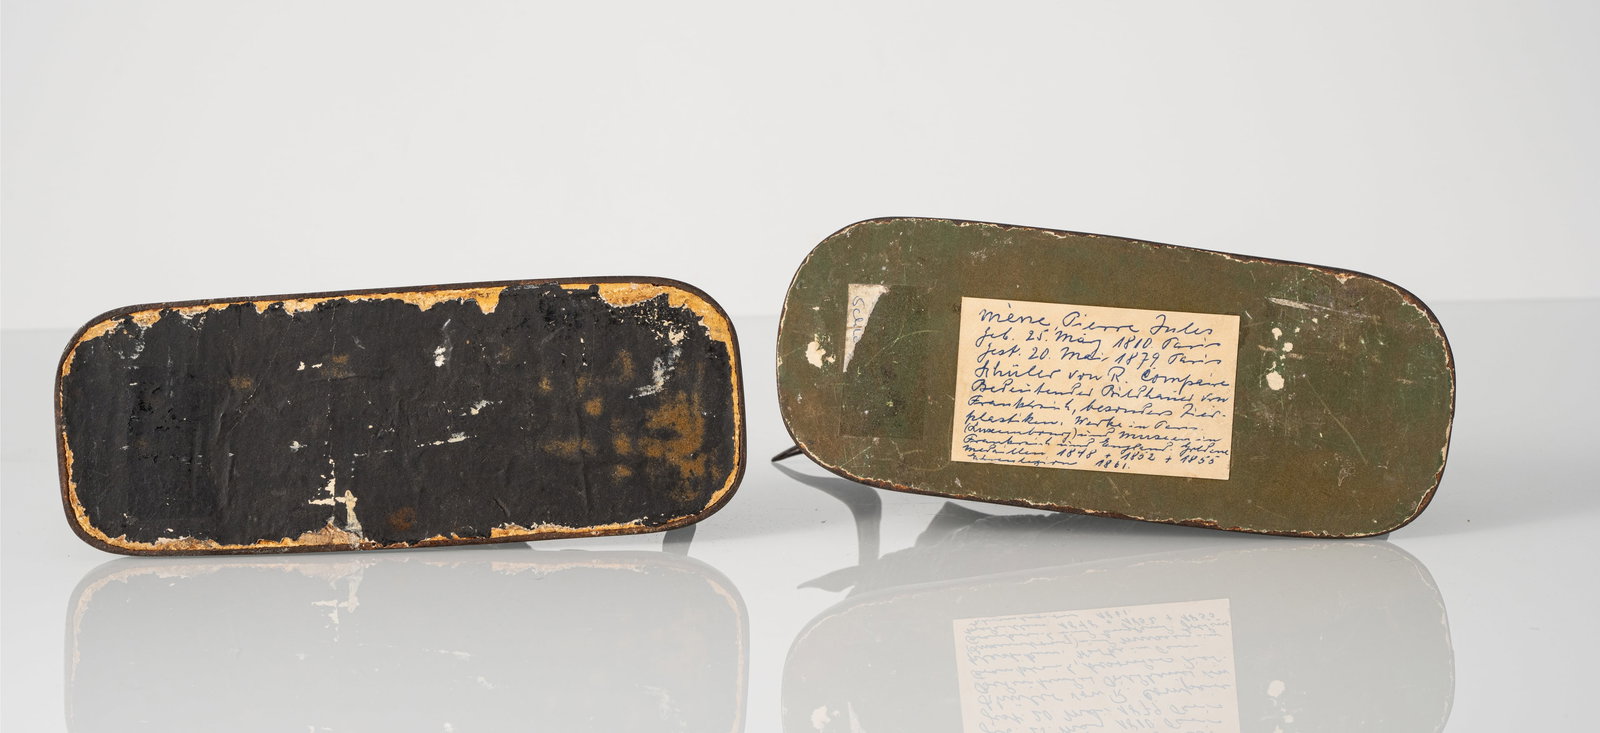 Schü
Mène, Pierre Jules
geb. 25. März 1810. Paris
gest. 20. Mai, 1879 Paris
Schüler von R. Compaire
Bedeutender Bildhauer von
Frankreich, besonders Tier-
plastiken. Werke in Paris
(Luxembourg) und Museen in
Frankreich und England. Goldene
Medaillen 1848 + 1852 + 1855
Ehrenlegion 1861.